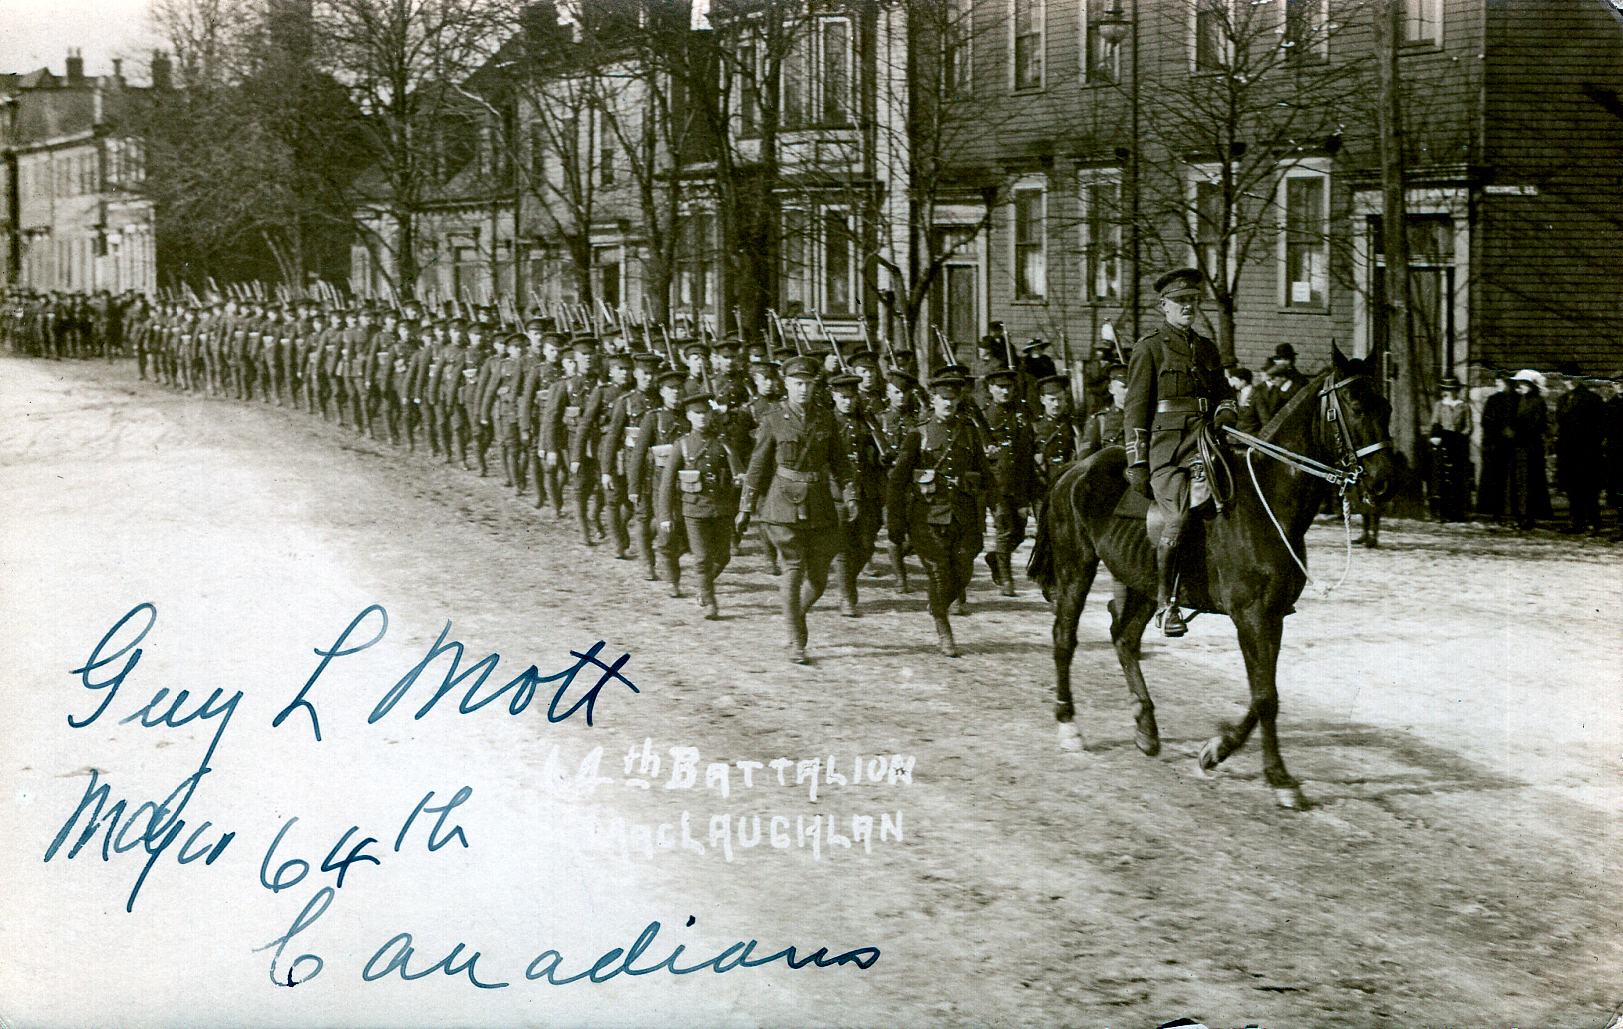 Guy L Mott
Major 64th
Canadians
64th BATTALION
MACLAUGHLAN